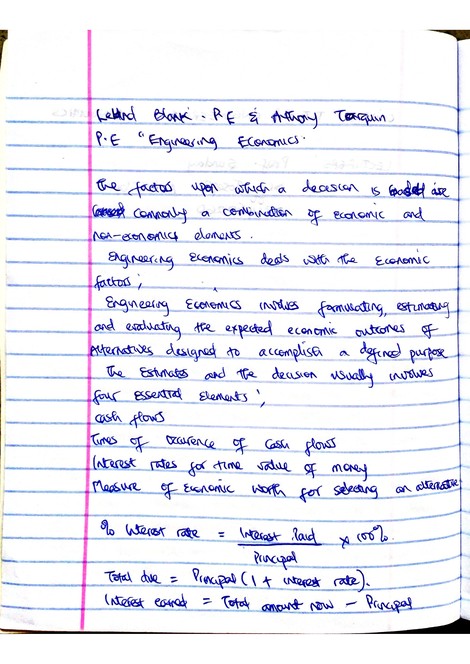 Leland Blank. P.E & Anthony Tarquin.
P.E "Engineering Economics.
The factors upon which a decesion is
commonly a combination of economic and
non-economics elements.
Engineering Economics deals with the Economic
factors;
Engineering Economics involves formulating, estimating
and evaluating the expected economic outcomes of
Alternatives designed to accomplish a defined purpose
The Estimates and the decision usually involves
four Essential Elements;
Cash flows
Times of Occurence of cash flows
Interest rates for time value of money
Measure of Economic worth for selecting an alternative
% Interest rate = Interest Paid x 100%.
Principal
Total due = Principal (1 + interest rate).
Interest earned = Total amount now - Principal